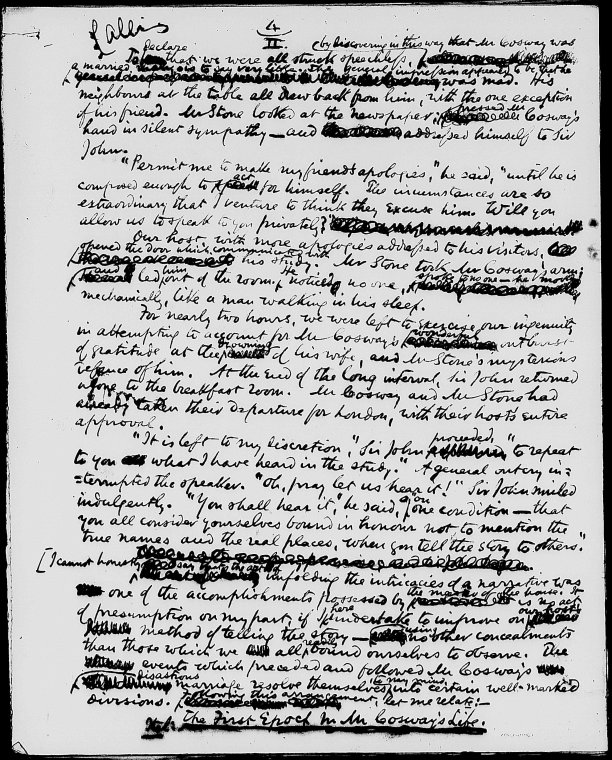 Lallis
4
II
Declare (by discovering in this way that Mr Cosway was
To that we were all struck speechless,
a married man is to say very little. The general impression appeared to be that he
was mad. His
neighbours at the table all drew back from him, with the one exception
of his friend. Mr Stone looked at the newspaper; pressed Mr Cosway's
hand in silent sympathy — and addressed himself to Sir
John.
"Permit me to make my friend's apologies," he said, "until he is
composed enough to act for himself. The circumstances are so
extraordinary that I venture to think they excuse him. Will you
allow us to speak to you privately?"
Our host, with more apologies addressed to his visitors,
opened the door which communicated with
his study. Mr Stone took Mr Cosway's arm,
and led him out of the room. He noticed no one, spoke to no one — he moved
mechanically, like a man walking in his sleep.
For nearly two hours, we were left to exercise our ingenuity
in attempting to account for Mr Cosway's wonderful outburst
of gratitude at the drowning of his wife, and Mr Stone's mysterious
defence of him. At the end of the long interval, Sir John returned
alone to the breakfast room. Mr Cosway and Mr Stone had
already taken their departure for London, with their host's entire
approval.
"It is left to my discretion," Sir John proceeded, "to repeat
to you what I have heard in the study." A general outcry in=
=terrupted the speaker. "Oh, pray let us hear it!" Sir John smiled
indulgently. "You shall hear it," he said, "on one condition — that
you all consider yourselves bound in honour not to mention the
true names and the real places, when you tell the story to others."
[I cannot honestly say that the art of
unfolding the intricacies of a narrative was
one of the accomplishments possessed by the master of the house. It
is no act
of presumption on my part, if I here undertake to improve on our host's
method of telling the story — using no other concealments
than those which we all bound ourselves to observe. The
events which preceded and followed Mr Cosway's
disastrous marriage resolve themselves, to my mind, into certain well-marked
divisions. Following this arrangement, let me relate:—
The First Epoch in Mr Cosway's Life.